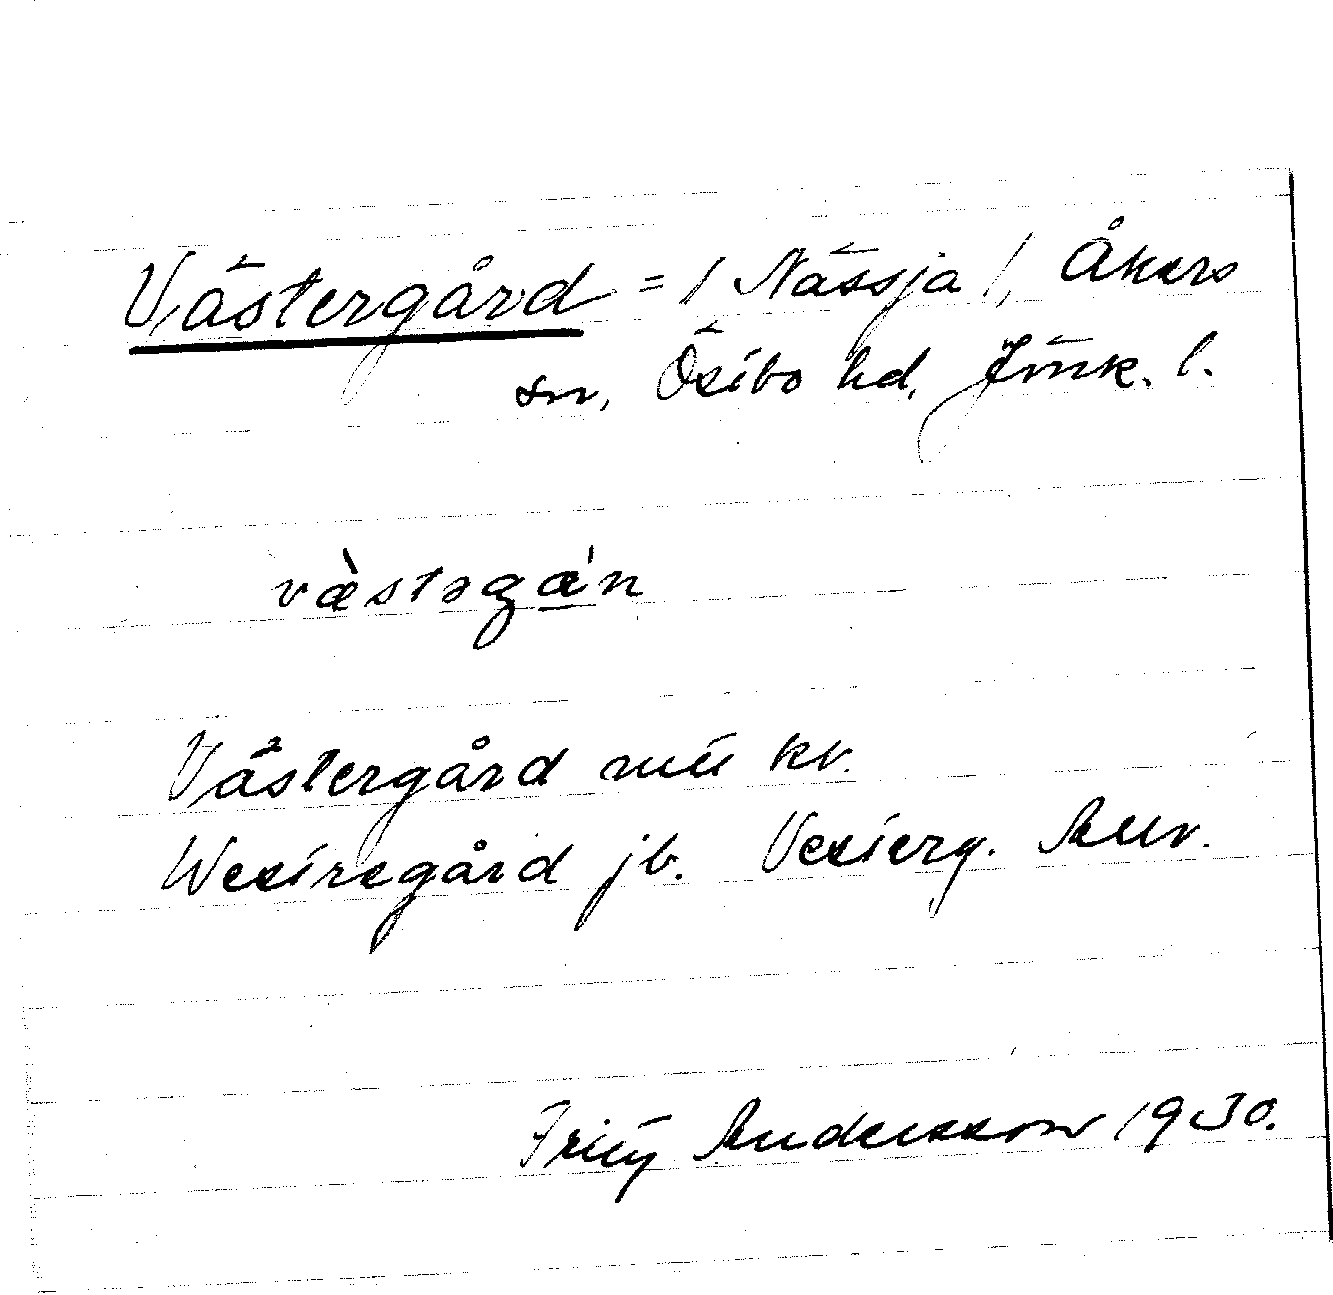 Västergård = / Nässja /, Åkers
sn, Östbo hd, Jönk. l.
væ̀stəgǽn
Västergård mtl kv.
Westregård jb. Vesterg. Allv.
Fritz Andersson 1930.